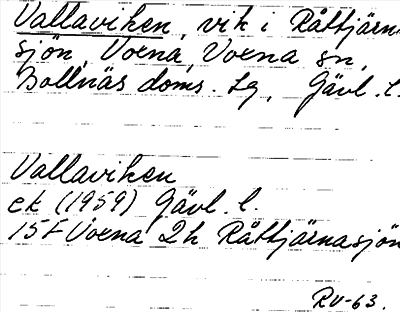 Vallaviken, vik i Råttjärna-
sjön, Voxna, Voxna sn,
Bollnäs doms. tg, Gävl. l.
Vallaviken
ek (1959) Gävl. l.
15F Voxna 2h Råttjärnasjön
RV-63.